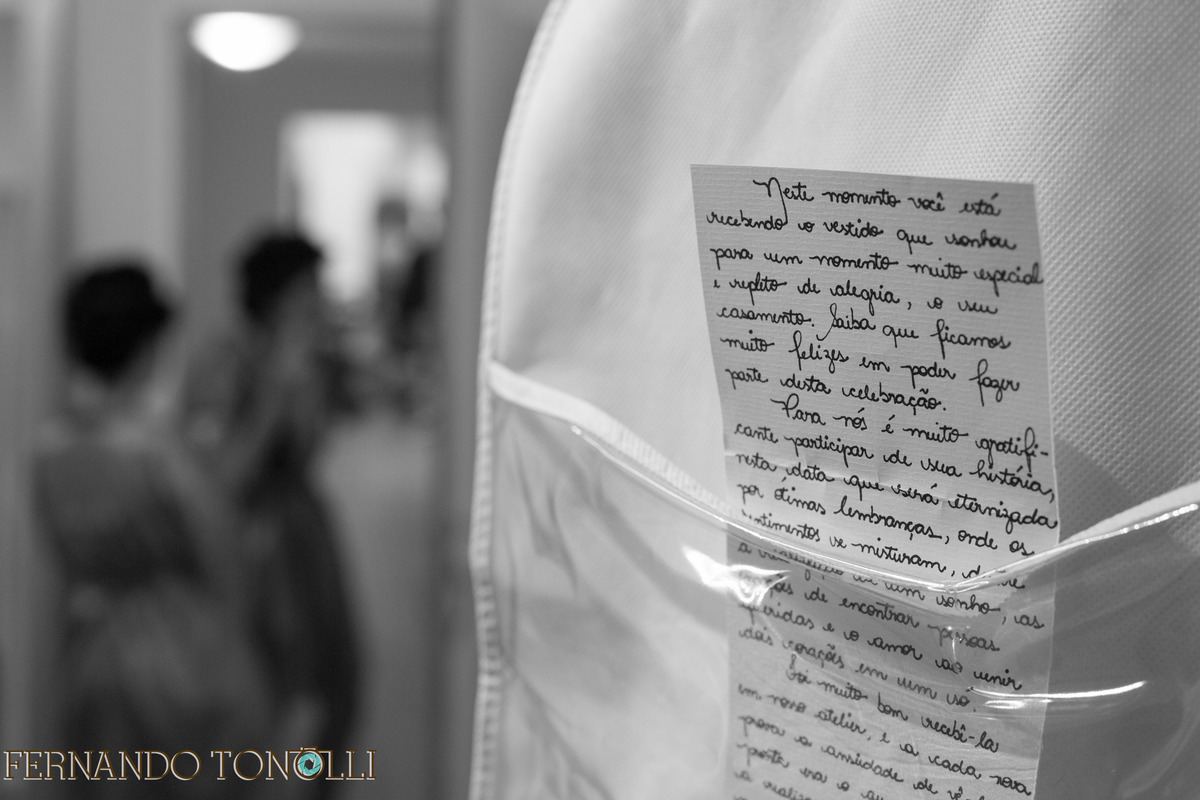 Neste momento você está
recebendo o vestido que sonhou
para um momento muito especial
e repleto de alegria, o seu
casamento. Saiba que ficamos
muito felizes em poder fazer
parte desta celebração.
Para nós é muito gratifi-
cante participar de sua história,
nesta data que será eternizada
por ótimas lembranças, onde os
sentimentos se misturam,
a de um sonho, as
de encontrar pessoas
queridas e o amor ao unir
dois corações em um só.
Foi muito bom recebê-la
em nosso atelier, e a cada nova
prova a ansiedade de
FERNANDO TONOLLI